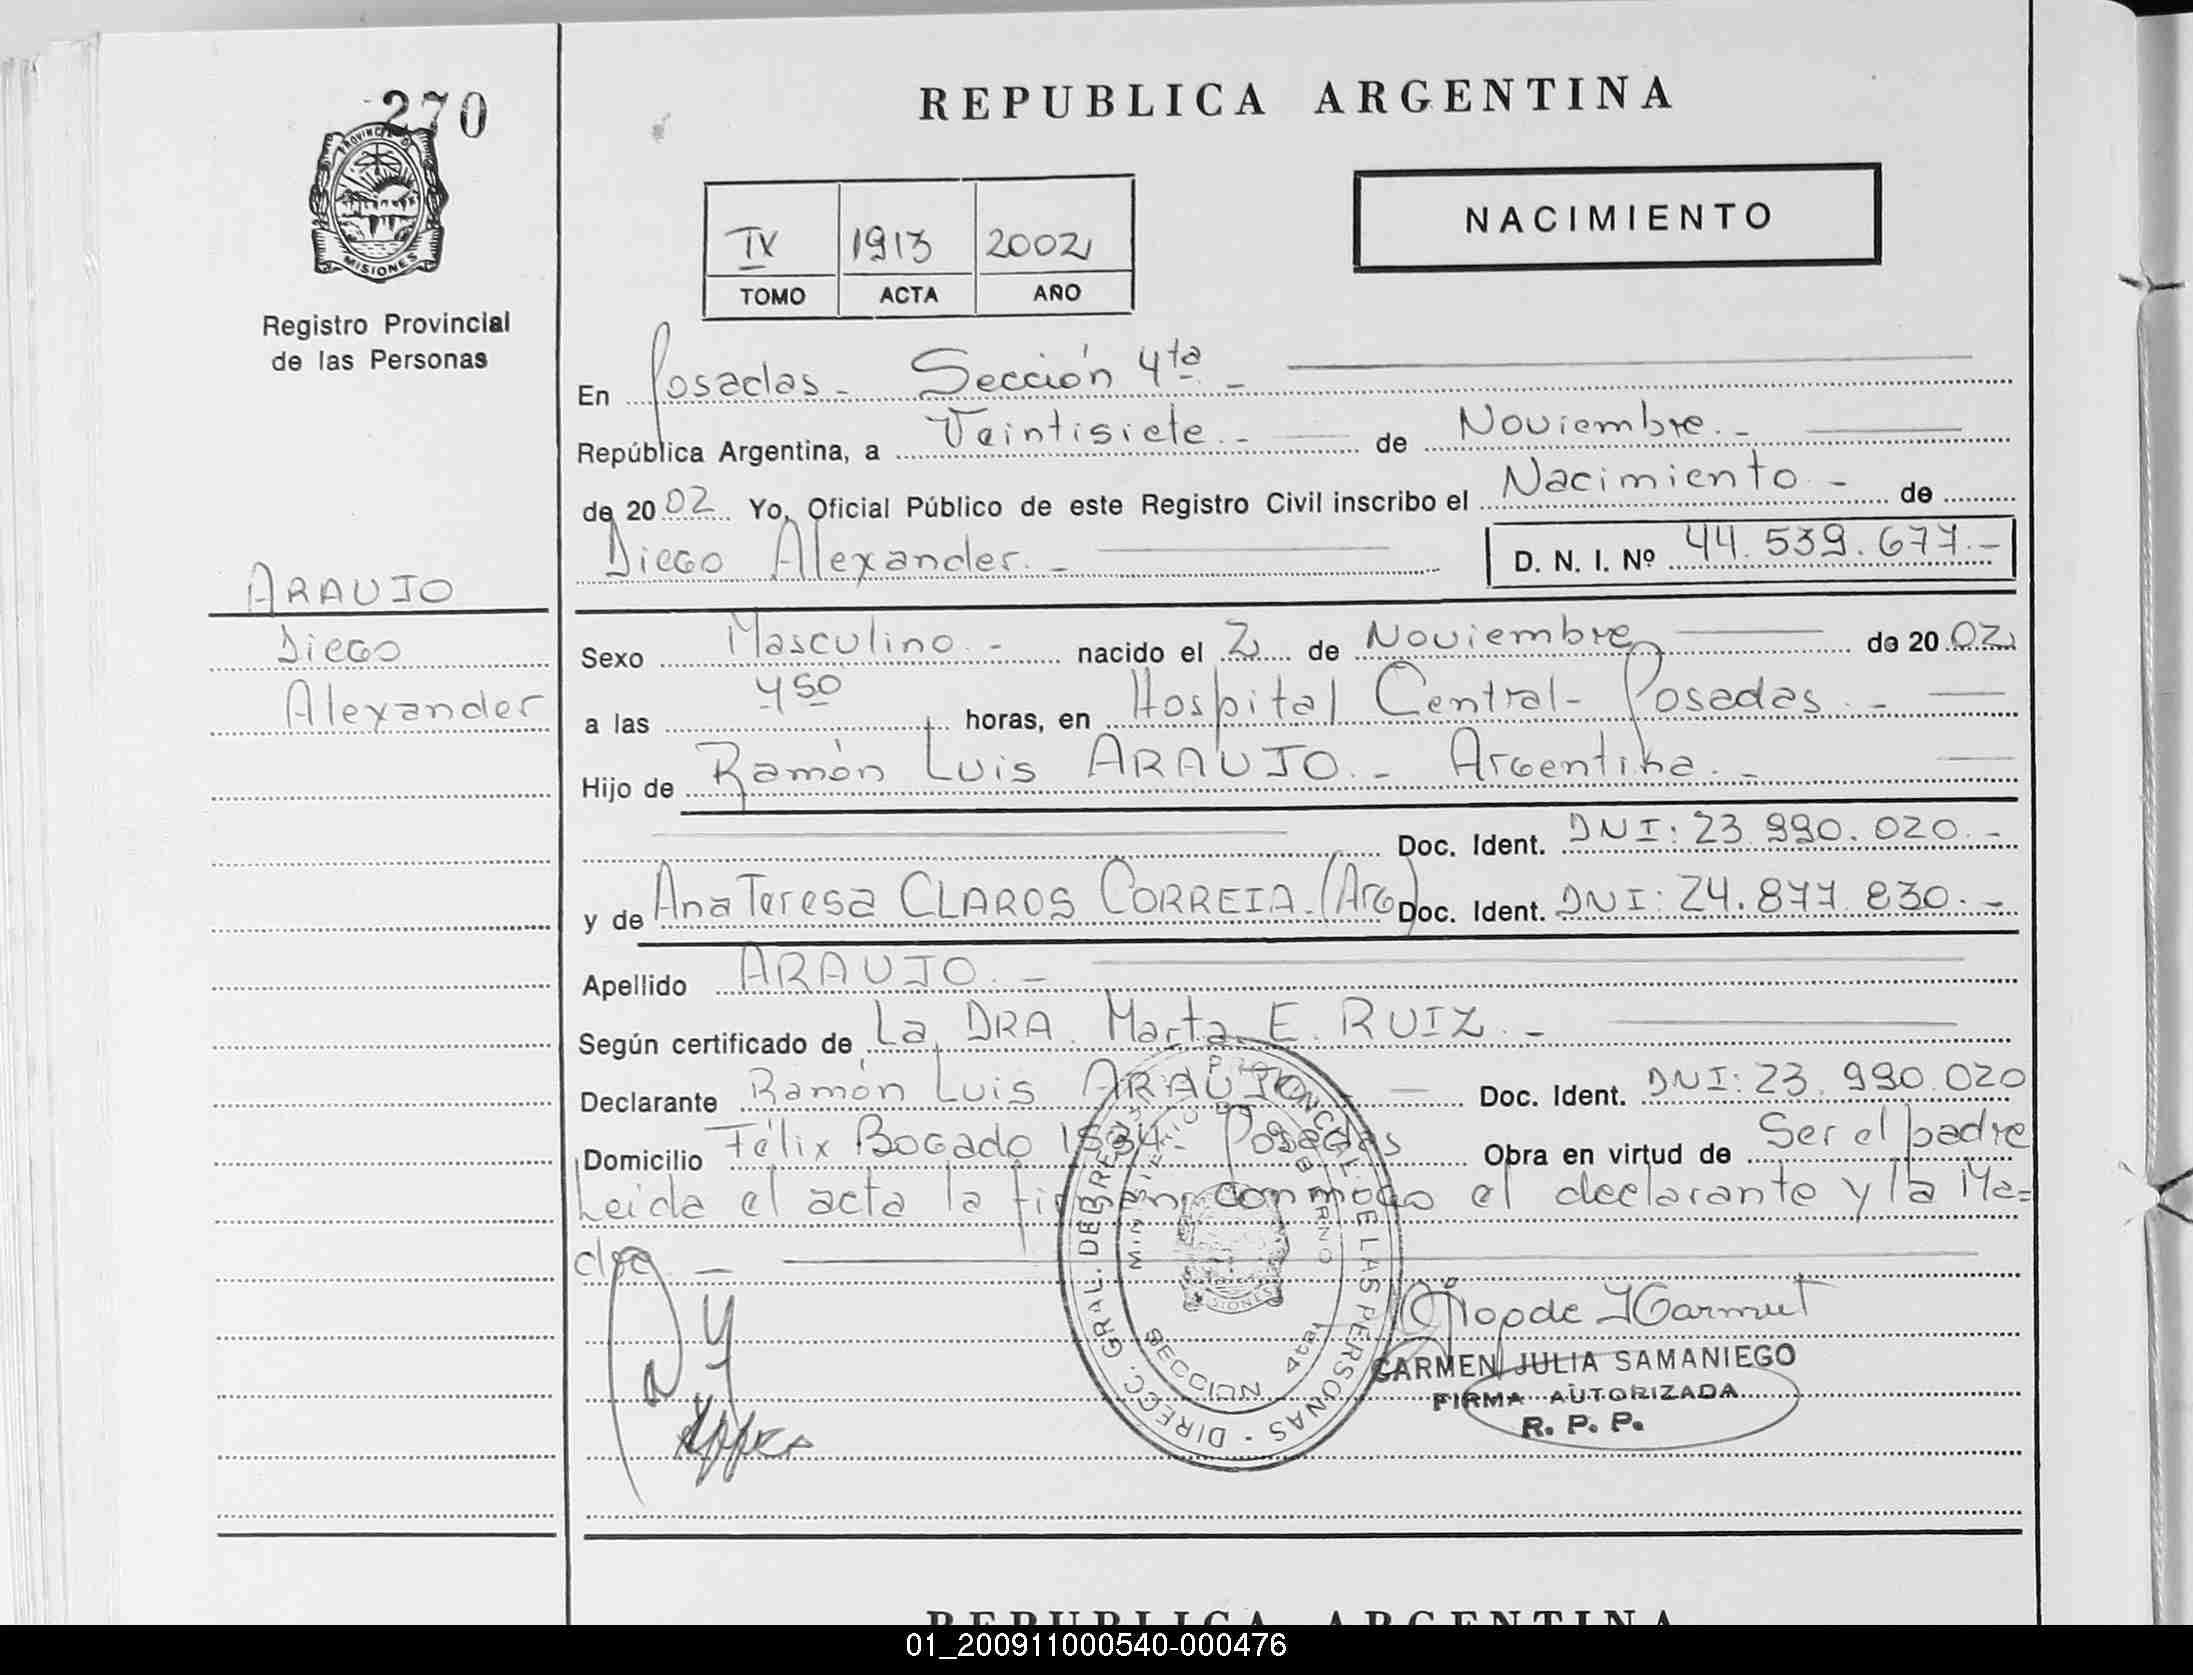 270
PROVINCIA DE
MISIONES
Registro Provincial
de las Personas
REPUBLICA ARGENTINA
NACIMIENTO
IV 1913 2002
TOMO ACTA AÑO
En Posadas - Sección 4ta -
República Argentina, a Veintisiete - de Noviembre. -
de 2002 Yo, Oficial Público de este Registro Civil inscribo el Nacimiento - de
Diego Alexander. - D. N. I. Nº 44.539.677.-
ARAUJO
Diego
Alexander
Sexo Masculino. - nacido el 2 de Noviembre de 2002
a las 450 horas, en Hospital Central - Posadas. -
Hijo de Ramón Luis ARAUJO. - Argentina. -
Doc. Ident. DNI: 23.990.020. -
y de Ana Teresa CLAROS CORREIA. (Arg) Doc. Ident. DNI: 24.877.830. -
Apellido ARAUJO. -
Según certificado de La DRA. Marta E. RUIZ. -
Declarante Ramón Luis ARAUJO Doc. Ident. DNI: 23.990.020
Domicilio Félix Bogado 1534 - Posadas Obra en virtud de Ser el padre
Leida el acta la firman conmogo el declarante y la Ma=
dre -
DIRECC. GRAL. DE REG. PROVINCIAL DE LAS PERSONAS
MINISTERIO DE GOBIERNO
MISIONES
SECCION 4ta.
CARMEN JULIA SAMANIEGO
FIRMA AUTORIZADA
R. P. P.
REPUBLICA ARGENTINA
01_200911000540-000476